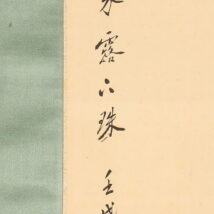 露六珠壬戌